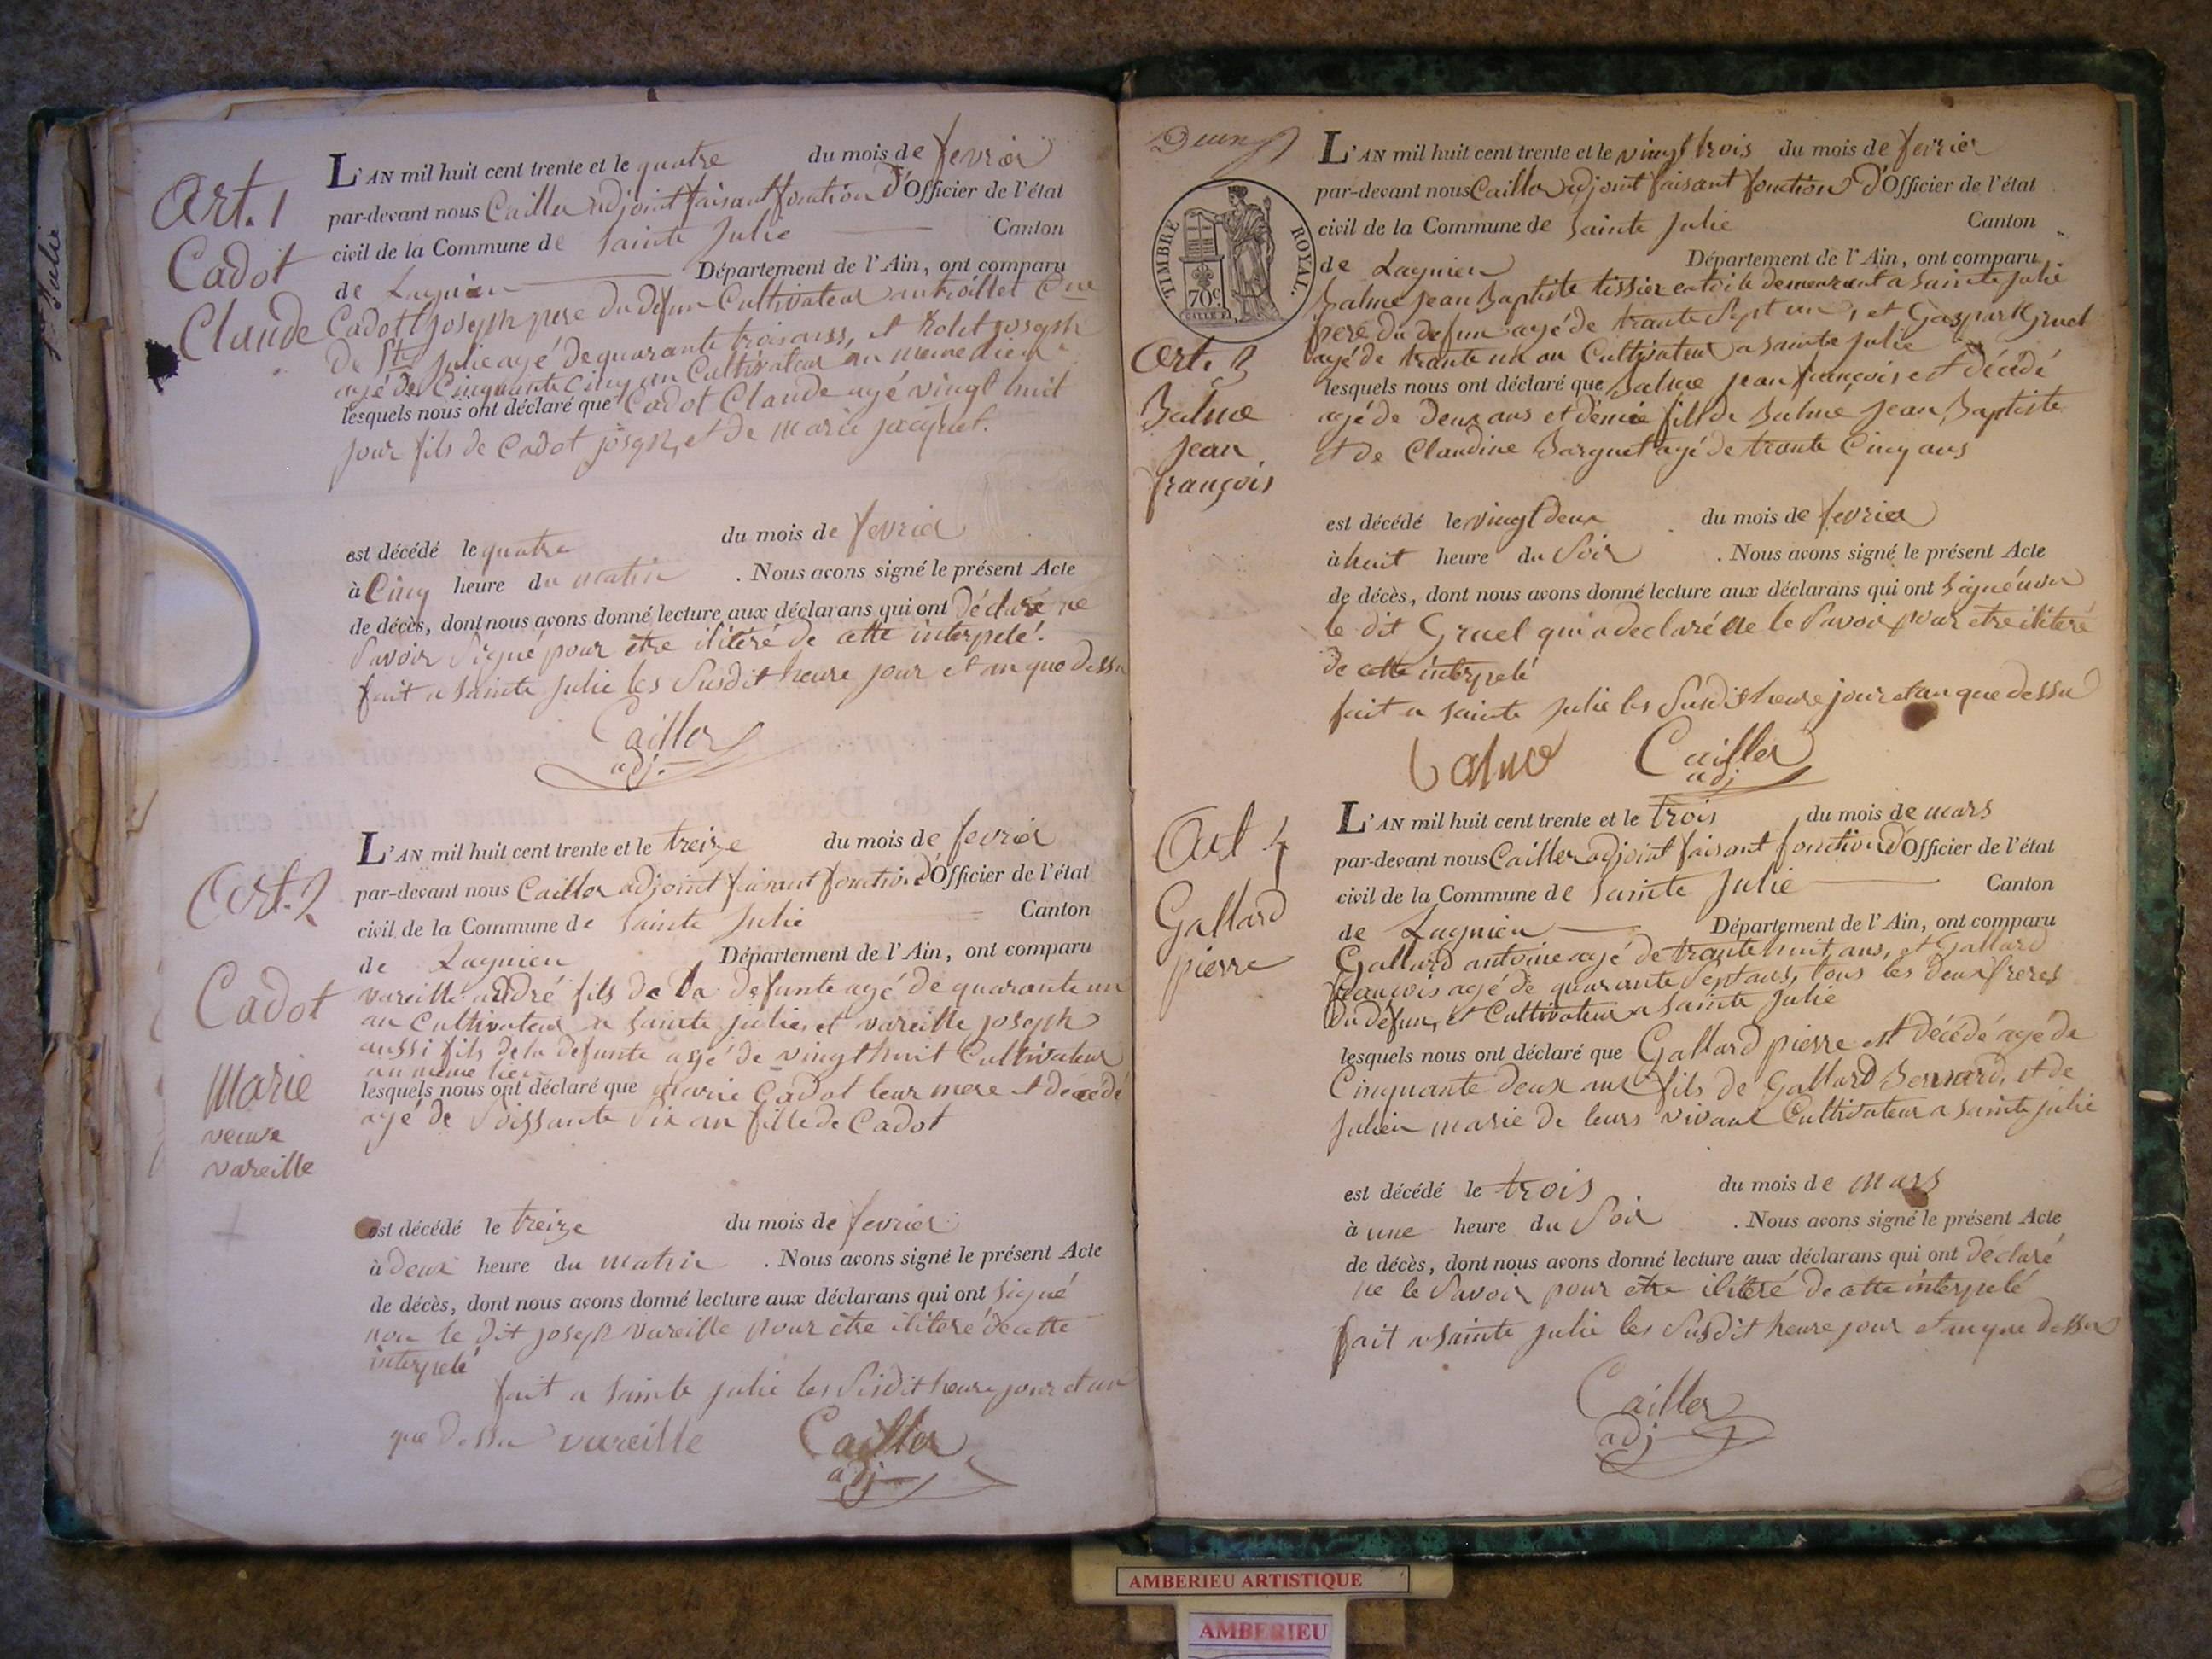 Ste Julie
Art. 1
Cadot
Claude
L'AN mil huit cent trente et le quatre du mois de fevrier
par-devant nous Cailler adjoint faisant fonction d'Officier de l'état
civil de la Commune de Sainte Julie Canton
de Lagnieu Département de l'Ain, ont comparu
Cadot Joseph pere du defun Cultivateur Cne
De Ste Julie agé de quarante trois ans, et Rolet joseph
agé de Cinquante Cinq an Cultivateur au meme lieu
lesquels nous ont déclaré que Cadot Claude agé vingt huit
jour fils de Cadot joseph, et de marie jacquet.
est décédé le quatre du mois de fevrier
à Cinq heure du matin . Nous avons signé le présent Acte
de décès, dont nous avons donné lecture aux déclarans qui ont déclaré ne
Savoir Signé pour être ilitéré de cette interpelé.
fait a Sainte Julie les Susdit heure jour et an que dessu
Cailler
adj.
Art. 2
Cadot
Marie
veuve
vareille
L'AN mil huit cent trente et le treize du mois de fevrier
par-devant nous Cailler adjoint faisant fonction d'Officier de l'état
civil de la Commune de Sainte Julie Canton
de Lagnieu Département de l'Ain, ont comparu
vareille andré fils de la defunte agé de quarante un
an Cultivateur a Sainte Julie, et vareille joseph
aussi fils de la defunte agé de vingt huit Cultivateur
au meme lieu
lesquels nous ont déclaré que marie Cadot leur mere et décédé
agé de Soissante Six an fille de Cadot
est décédé le treize du mois de fevrier
à deux heure du matin . Nous avons signé le présent Acte
de décès, dont nous avons donné lecture aux déclarans qui ont Signé
non le dit joseph vareille pour être ilitéré de cette
interpelé
fait a Sainte Julie les Susdit heure jour et an
que dessu vareille Cailler
adj
TIMBRE ROYAL.
70c.
Art. 3
Balme
Jean
françois
L'AN mil huit cent trente et le vingt trois du mois de fevrier
par-devant nous Cailler adjoint faisant fonction d'Officier de l'état
civil de la Commune de Sainte Julie Canton
de Lagnieu Département de l'Ain, ont comparu
Balme Jean Baptiste tissier en toile demeurant a Sainte Julie
pere du defun agé de trante Sept an, et Gaspart Gruel
agé de trante un an Cultivateur a Sainte Julie
lesquels nous ont déclaré que Balme Jean françois est décédé
agé de deux ans et demie fils de Balme Jean Baptiste
et de Claudine Barguet agé de trante Cinq ans
est décédé le vingt deux du mois de fevrier
à huit heure du Soir . Nous avons signé le présent Acte
de décès, dont nous avons donné lecture aux déclarans qui ont Signé non
le dit Gruel qui a declaré ne le Savoir pour etre ilitéré
de cette interpelé
fait a Sainte Julie les Susdit heure jour et an que dessu
Balme Cailler
adj
Art 4
Gallard
pierre
L'AN mil huit cent trente et le trois du mois de mars
par-devant nous Cailler adjoint faisant fonction d'Officier de l'état
civil de la Commune de Sainte Julie Canton
de Lagnieu Département de l'Ain, ont comparu
Gallard antoine agé de trante huit ans, et Gallard
françois agé de quarante Sept ans, tous les deux freres
du defun, et Cultivateur a Sainte Julie
lesquels nous ont déclaré que Gallard pierre est décédé agé de
Cinquante deux ans fils de Gallard Bernard, et de
Julien marie de leurs vivant Cultivateur a Sainte Julie
est décédé le trois du mois de mars
à une heure du Soir . Nous avons signé le présent Acte
de décès, dont nous avons donné lecture aux déclarans qui ont déclaré
ne le Savoir pour être ilitéré de cette interpelé
fait a Sainte Julie les Susdit heure jour et an que dessu
Cailler
adj
AMBERIEU ARTISTIQUE
AMBERIEU